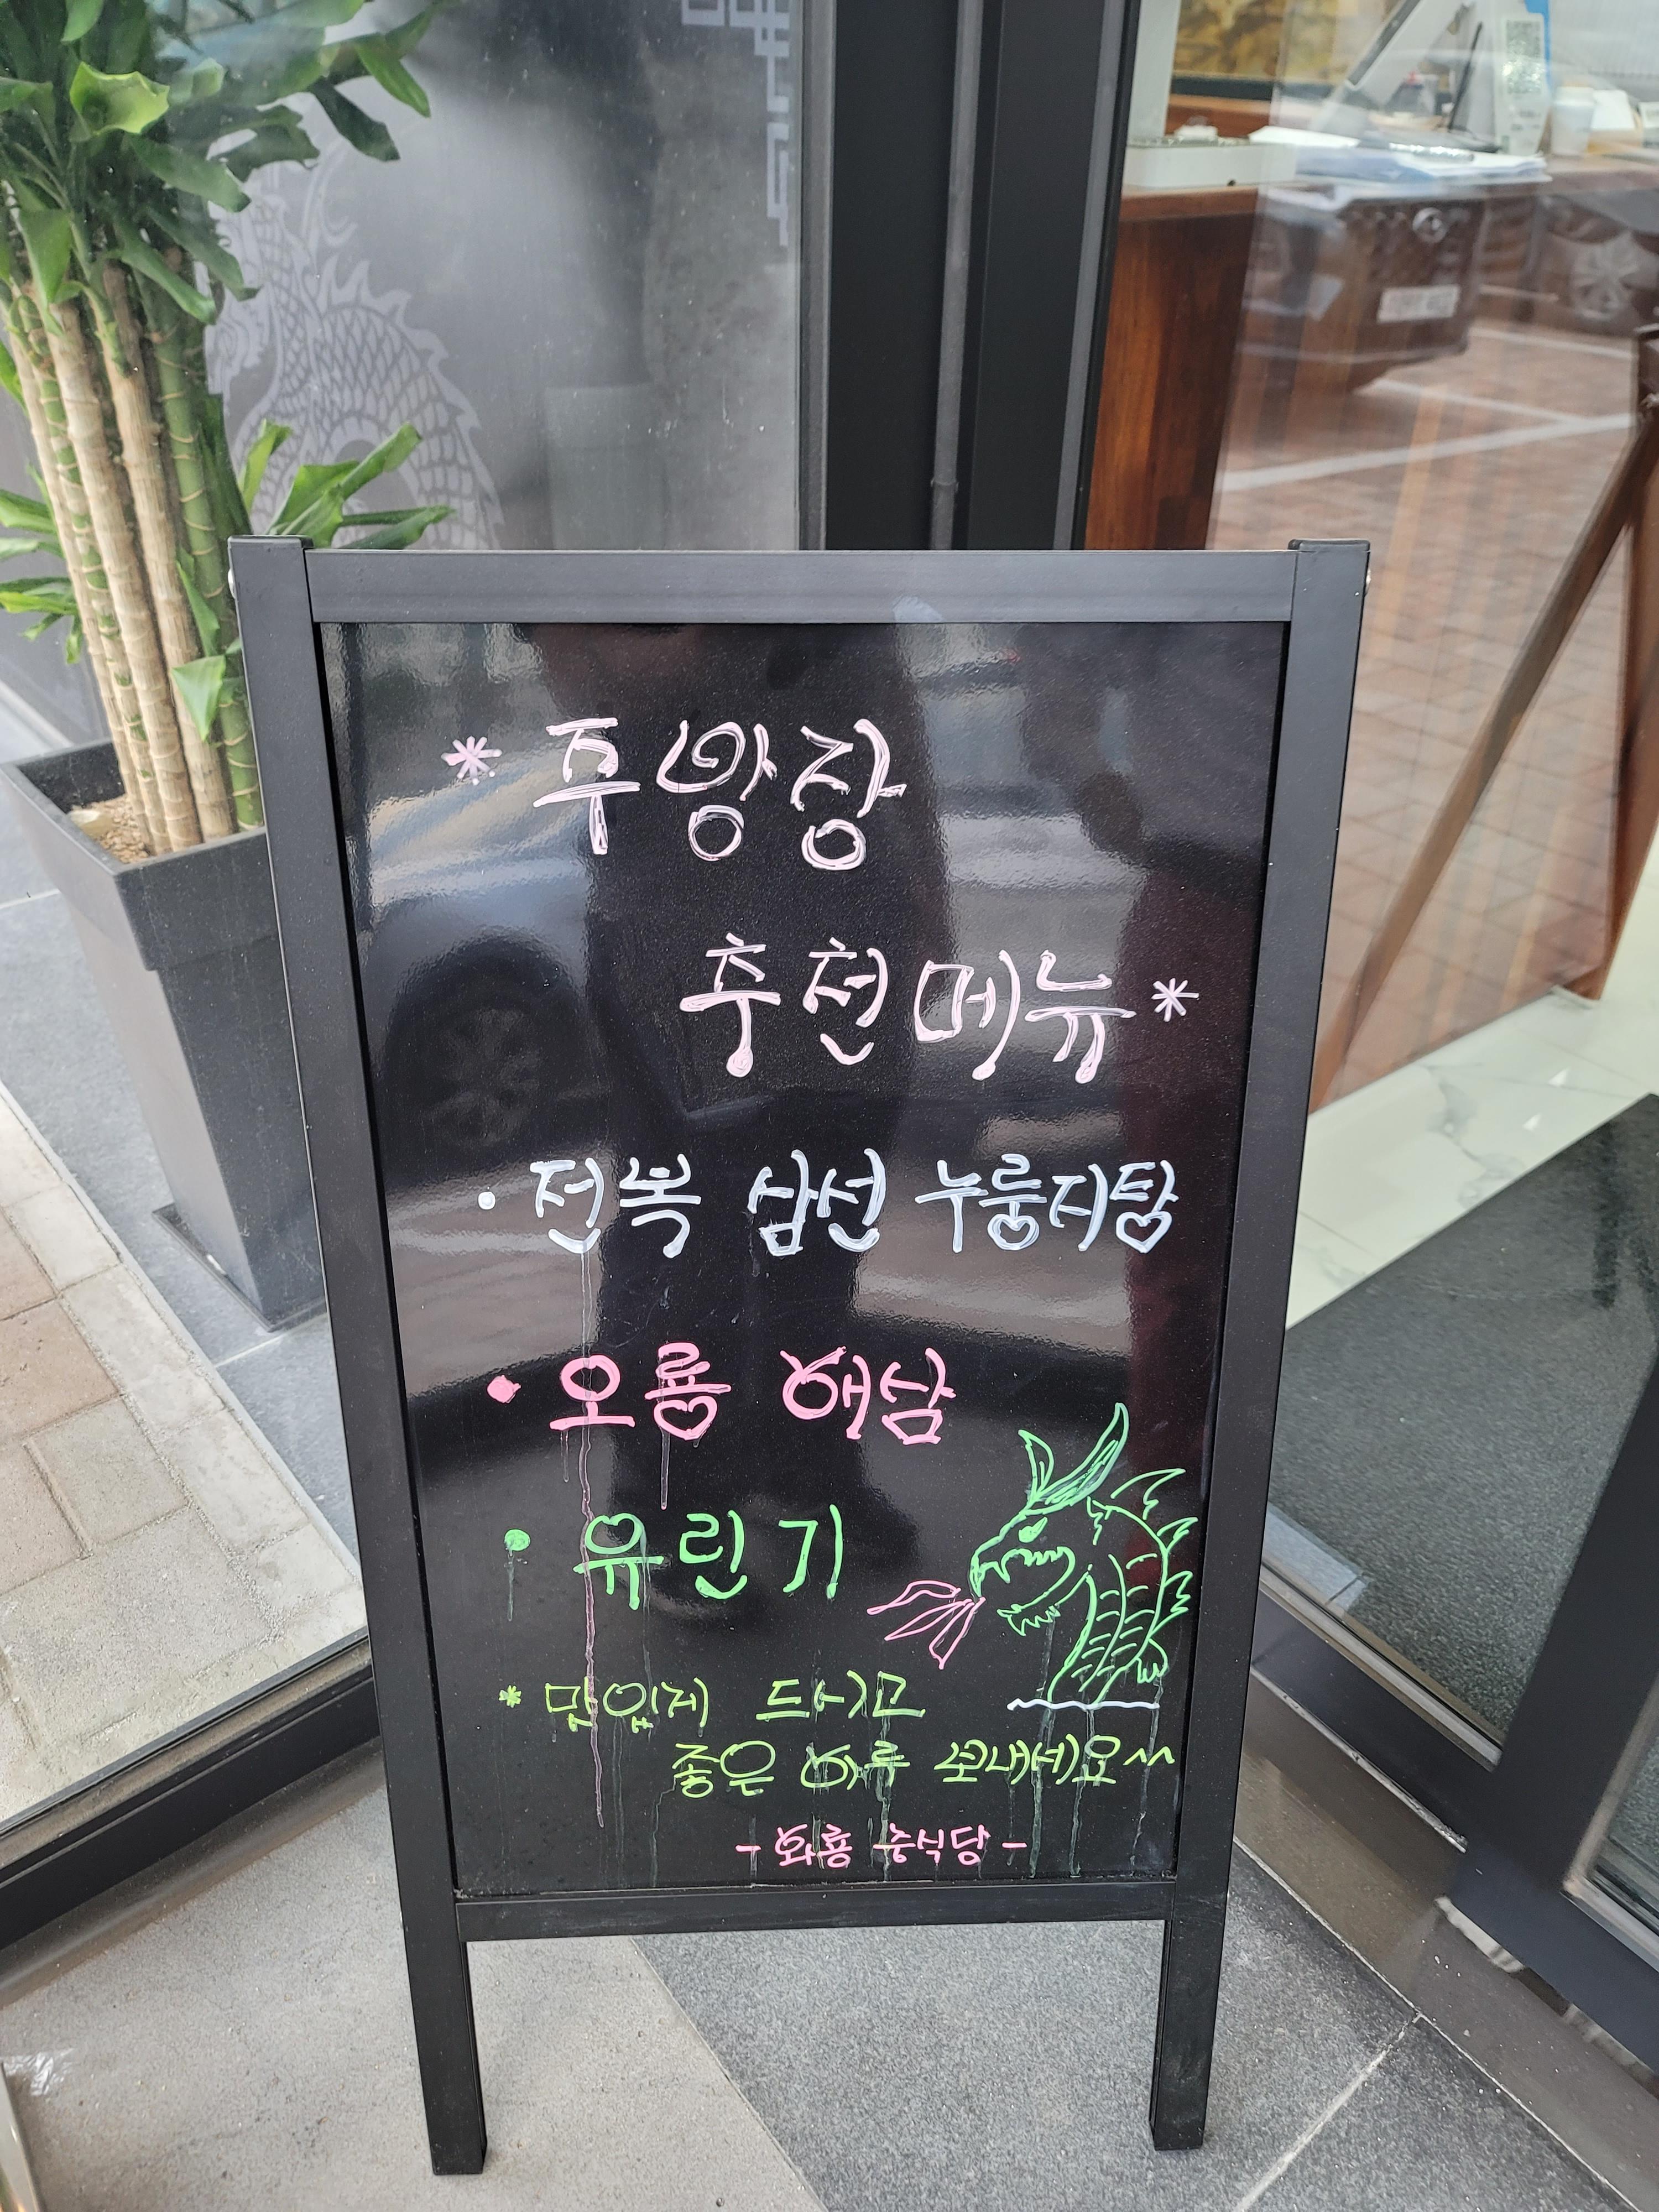 * 주방장
추천메뉴 *
· 전복 삼선 누룽지탕
· 오룡 해삼
· 유린기
* 맛있게 드시고
좋은 하루 보내세요^^
- 화룡 중식당 -